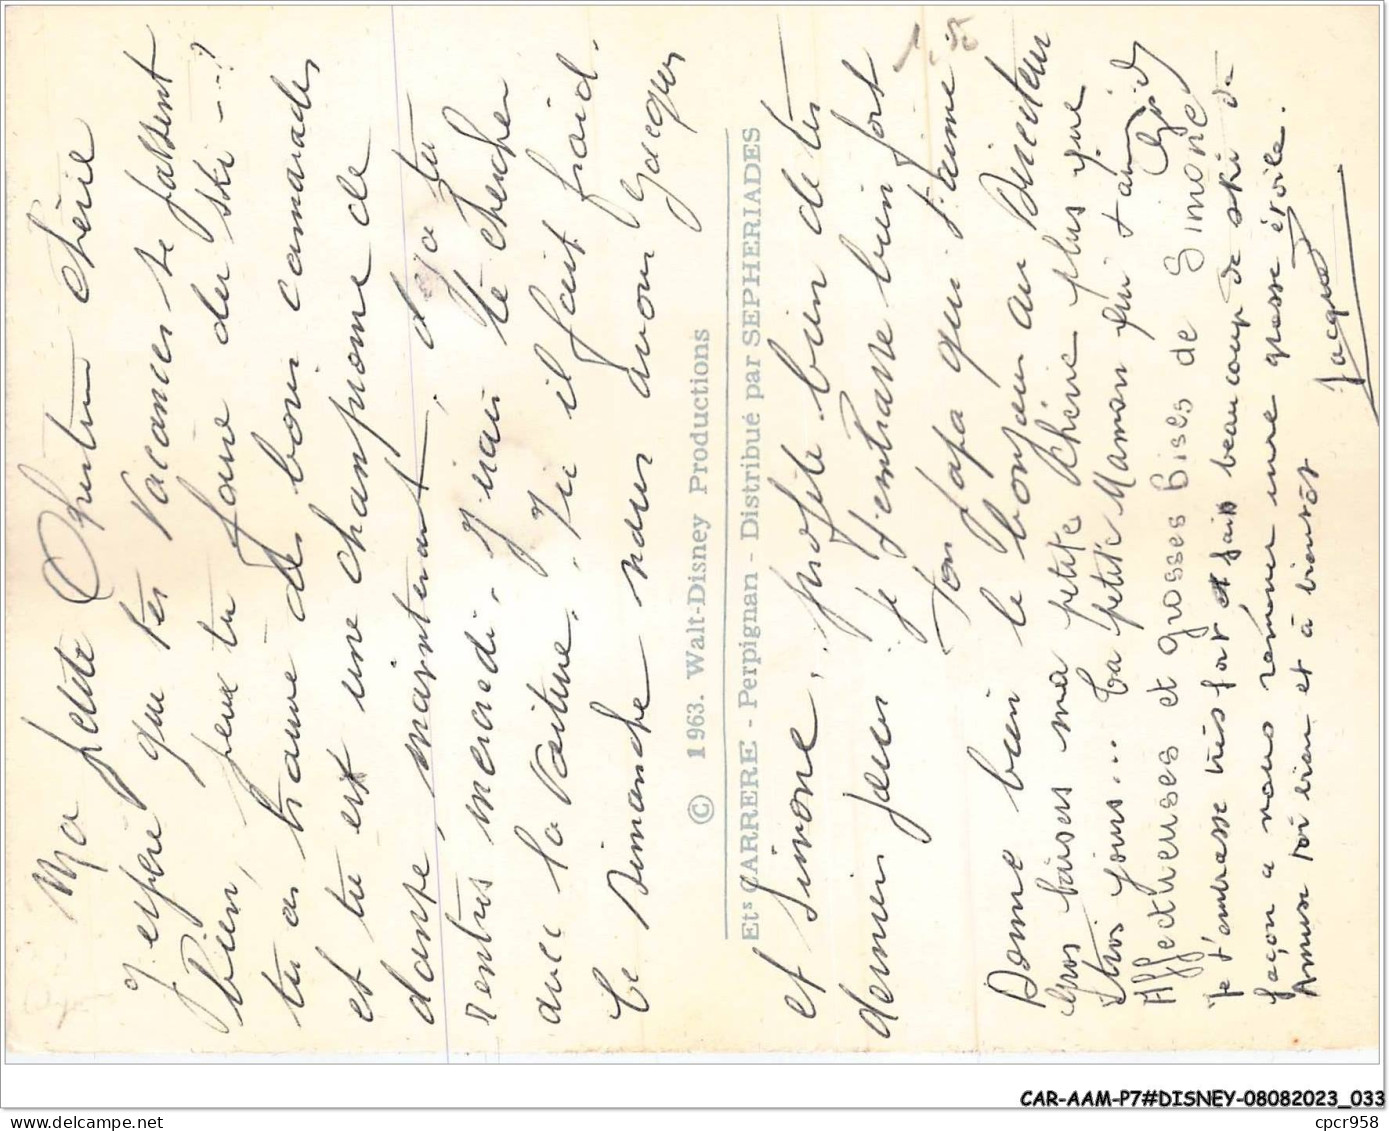 Ma petite Christine chérie
J'espère que tes vacances se passent
bien, peux tu faire du ski --?
tu as trouvé des bons camarades
et tu est une championne de
danse, maintenant, déjà tu
rentres mercredi, j'irais te chercher
avec la voiture, ici il fait froid.
Ce dimanche nous avons Jacques
© 1963. Walt-Disney Productions
Ets CARRERE - Perpignan - Distribué par SEPHERIADES
et Simone, profite bien de tes
dernier jours je t'embrasse bien fort
Ton papa qui t'aime
Donne bien le bonjour au Directeur
Gros baisers ma petite chérie plus que
trois jours... ta petite Maman qui t'aime
Affectueuses et grosses bises de Simone
Je t'embrasse très fort et fais beaucoup de ski de
façon a nous ramener une grosse étoile.
Amuse toi bien et à bientôt
Jacques
CAR-AAM-P7#DISNEY-08082023_033
cpcr958